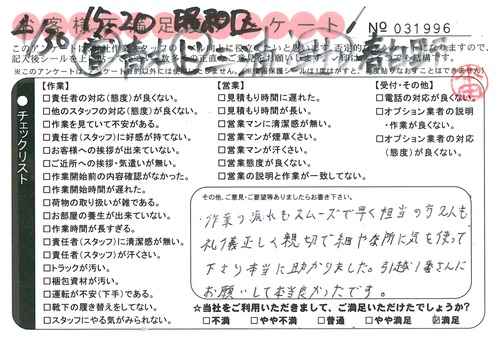 お客様不満足度アンケート
№ 031996
4/30 15-20 昭和区
チェックリスト
【作業】
□責任者の対応(態度)が良くない。
□他のスタッフの対応(態度)が良くない。
□作業を見ていて不安がある。
□責任者(スタッフ)に好感が持てない。
□お客様への挨拶が出来ていない。
□ご近所への挨拶・気遣いが無い。
□作業開始前の内容確認がなかった。
□作業開始時間が遅れた。
□荷物の取り扱いが雑である。
□お部屋の養生が出来ていない。
□作業時間が長すぎる。
□責任者(スタッフ)に清潔感が無い。
□責任者(スタッフ)が汗くさい。
□トラックが汚い。
□梱包資材が汚い。
□運転が安心(下手)である。
□靴下の履き替えをしてない。
□スタッフにやる気がみられない。
【営業】
□見積もり時間に遅れた。
□見積もり時間が長い。
□営業マンに清潔感が無い。
□営業マンが煙草くさい。
□営業マンが汗くさい。
□営業態度が良くない。
□営業の説明と作業が一致してない。
【受付・その他】
□電話の対応が良くない。
□オプション業者の説明
・作業が良くない。
□オプション業者の対応
(態度)が良くない。
その他、ご意見・ご要望等ありましたらお書き下さい。
・作業の流れもスムーズで早く担当の方2人も
礼儀正しく親切で細やかな所に気を使って
下さり本当に助かりました。引越1番さんに
お願いして本当良かったです。
☆当社をご利用いただきまして、ご満足いただけたでしょうか?
□不満 □やや不満 □普通 □やや満足 ☑満足